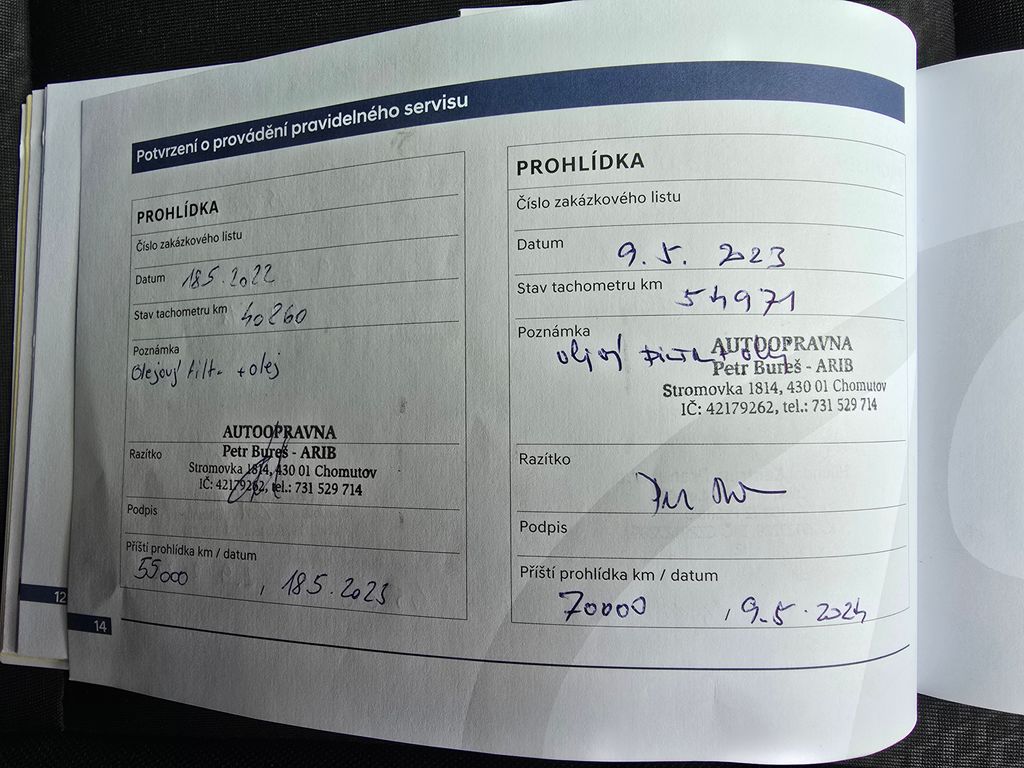 Potvrzení o provádění pravidelného servisu
PROHLÍDKA
Číslo zakázkového listu
Datum 18.5.2022
Stav tachometru km 40260
Poznámka
Olejový filtr +olej
AUTOOPRAVNA
Petr Bureš - ARIB
Razítko
Stromovka 1814, 430 01 Chomutov
IČ: 42179262, tel.: 731 529 714
Podpis
Příští prohlídka km / datum
55000 , 18.5.2023
PROHLÍDKA
Číslo zakázkového listu
Datum 9.5. 2023
Stav tachometru km 54971
Poznámka
olejový filtr + olej
AUTOOPRAVNA
Petr Bureš - ARIB
Stromovka 1814, 430 01 Chomutov
IČ: 42179262, tel.: 731 529 714
Razítko
Podpis
Příští prohlídka km / datum
70000 , 9.5.2024
12
14